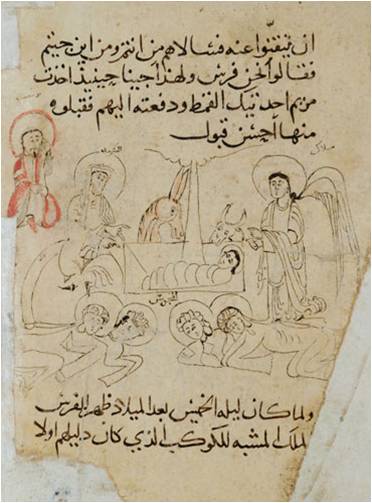 ان تيقنوا عنه فسالاهم من انتم ومن اين جيتم
فقالوا نحن فرس ولهذا جينا حينيذ اخذت
مريم احد تيك القمط ودفعته اليهم فقبلوه
منها احسن قبول
ملاك
المجوس
ولما كان ليله الخميس بعد الميلاد ظهر للفرس
الملاك المشبه للكوكب الذي كان دليلهم اولا